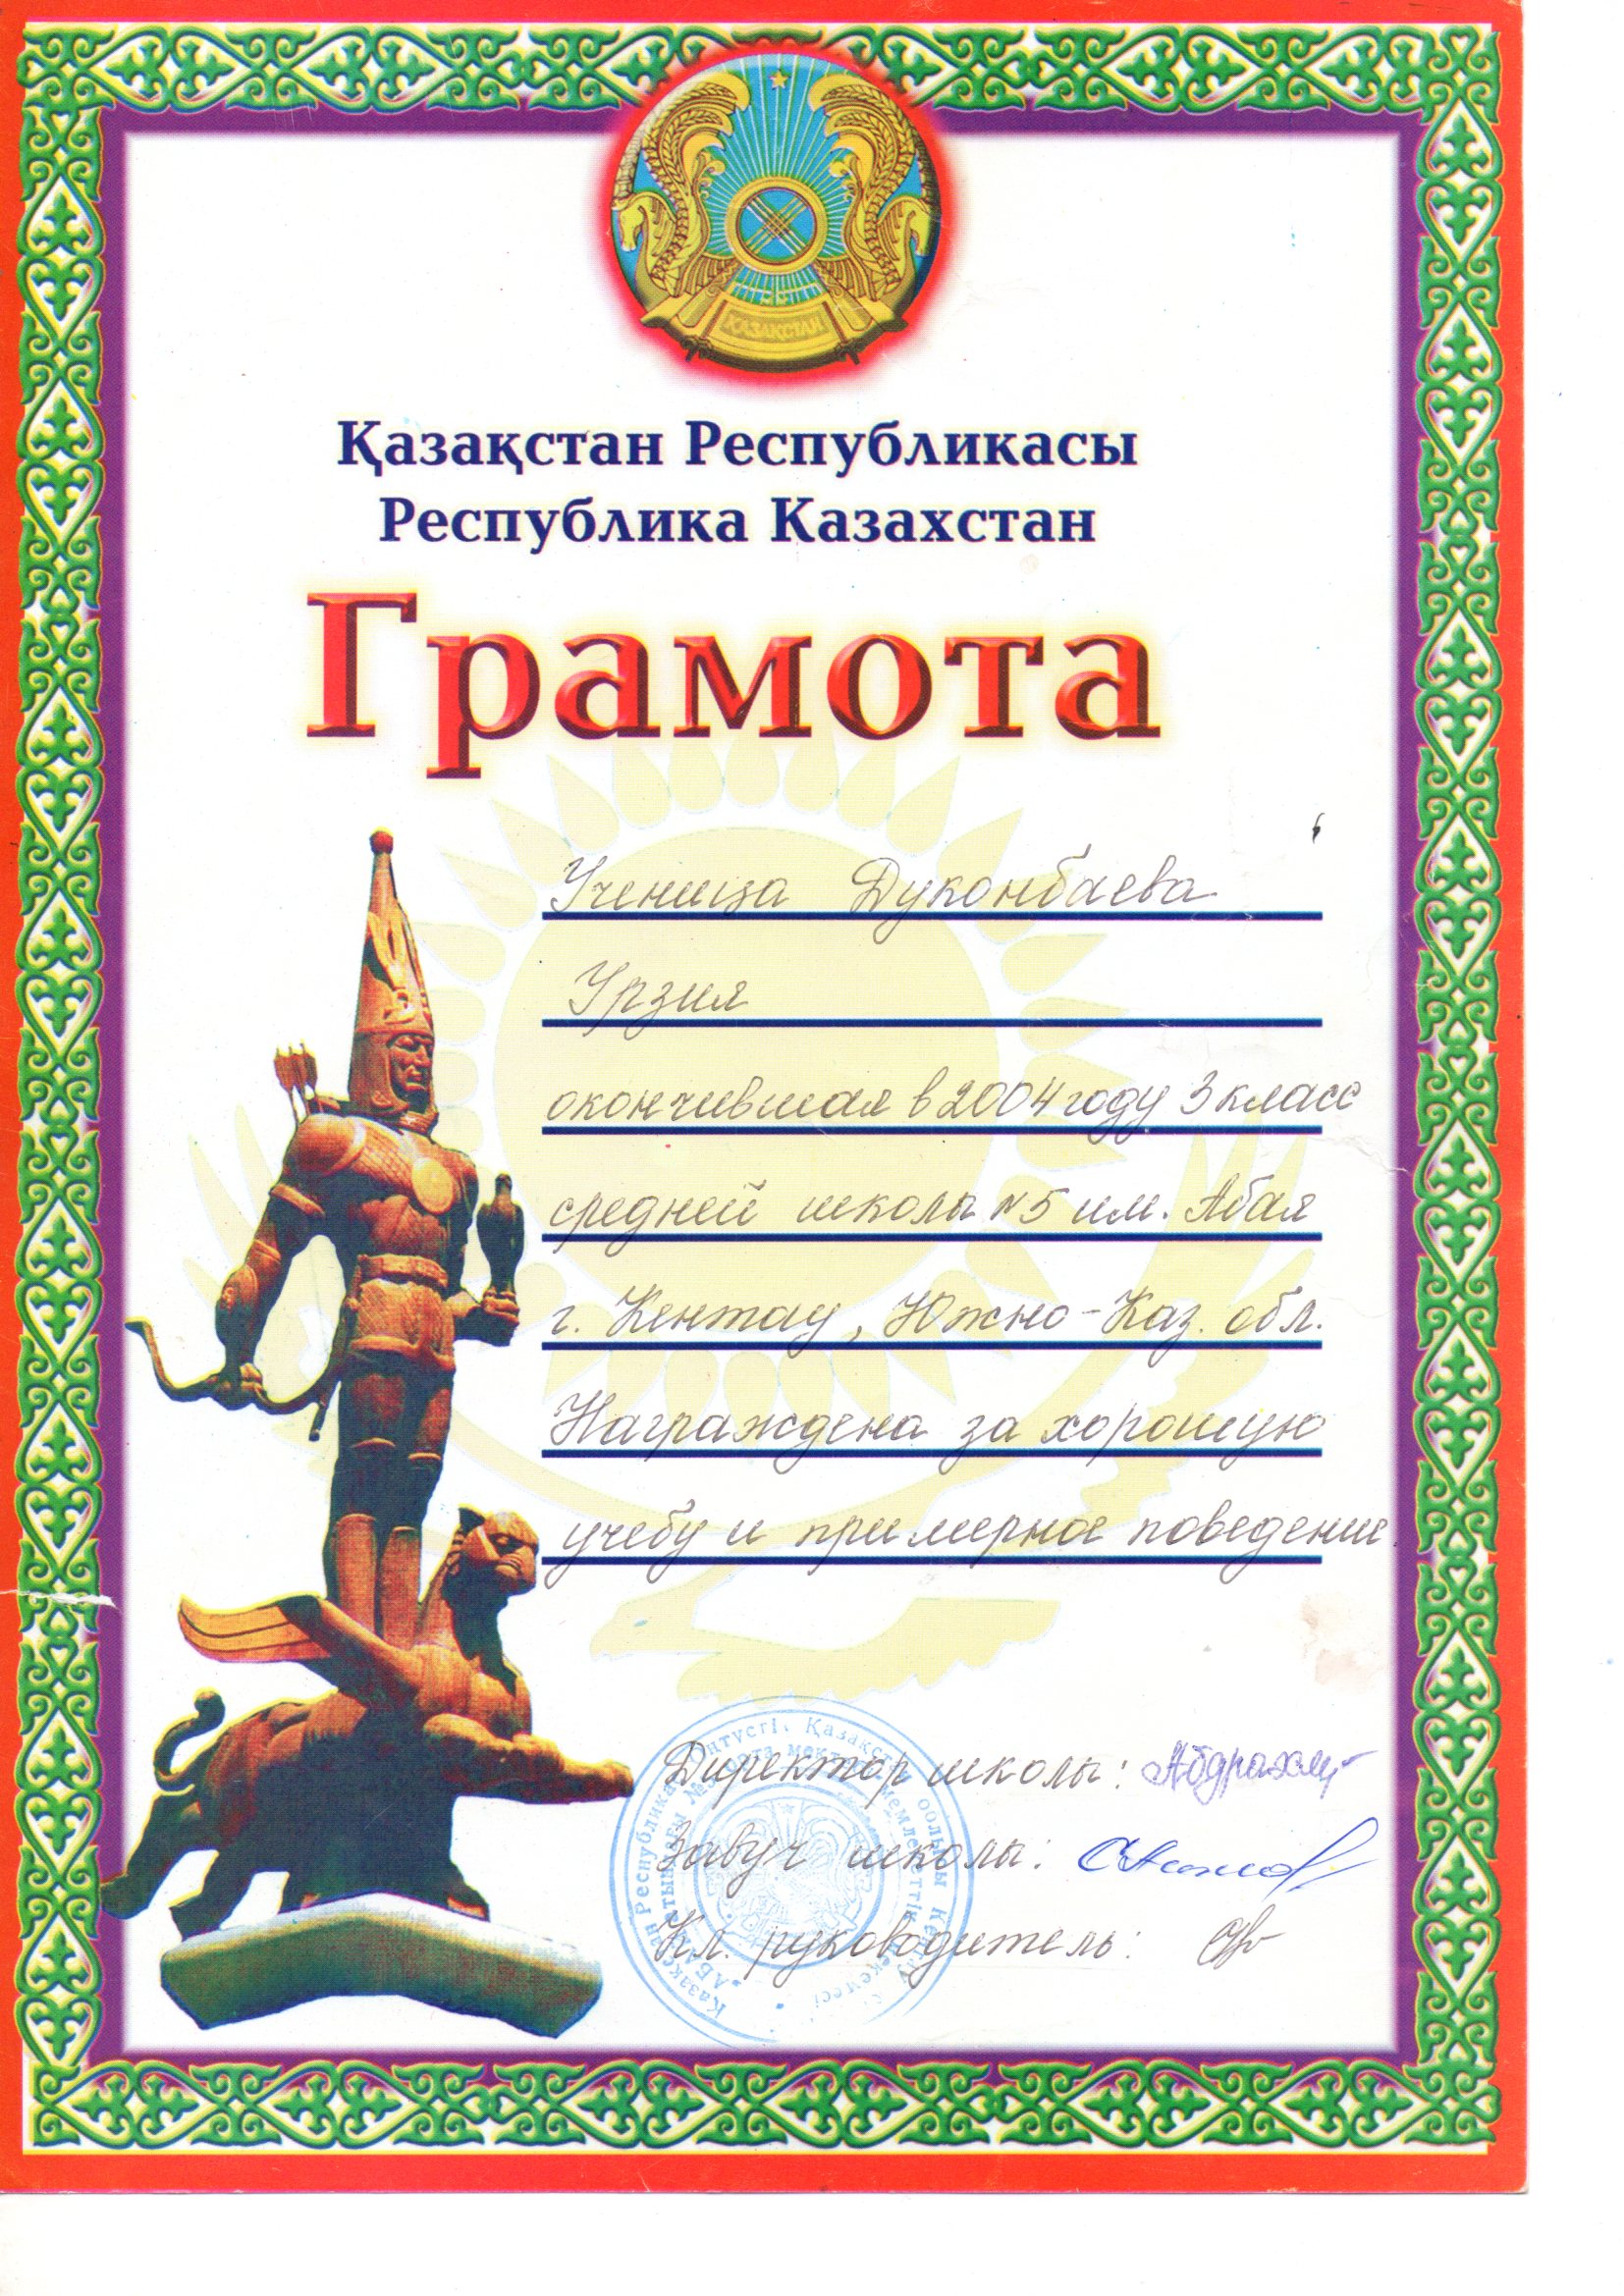 ҚАЗАҚСТАН
Қазақстан Республикасы
Республика Казахстан
Грамота
Ученица Дуконбаева
Урзия
окончившая в 2004 году 3 класс
средней школы №5 им. Абая
г. Кентау, Южно-Каз. обл.
Награждена за хорошую
учебу и примерное поведение
Директор школы:
Завуч школы:
Кл. руководитель: